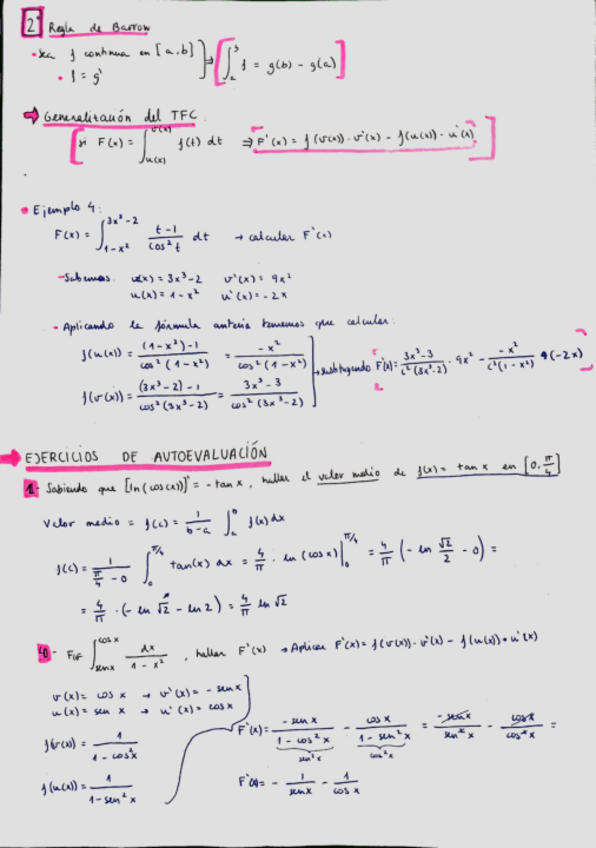 2º Regla de Barrow
• Sea f continua en [a,b]
• f = g' ⇒ ∫_a^b f = g(b) - g(a)
⇒ Generalización del TFC
si F(x) = ∫_{u(x)}^{v(x)} f(t) dt ⇒ F'(x) = f(v(x))·v'(x) - f(u(x))·u'(x)
• Ejemplo 4:
F(x) = ∫_{1-x²}^{3x³-2} (t-1)/(cos² t) dt → calcular F'(x)
- Sabemos: v(x) = 3x³-2 v'(x) = 9x²
u(x) = 1-x² u'(x) = -2x
- Aplicando la fórmula anterior tenemos que calcular:
f(u(x)) = ((1-x²)-1)/(cos²(1-x²)) = (-x²)/(cos²(1-x²))
f(v(x)) = ((3x³-2)-1)/(cos²(3x³-2)) = (3x³-3)/(cos²(3x³-2))
→ substituyendo F'(x) = (3x³-3)/(c²(3x³-2)) · 9x² - (-x²)/(c²(1-x²)) · (-2x)
⇒ EJERCICIOS DE AUTOEVALUACIÓN
1- Sabiendo que [ln(cos(x))]' = -tan x, hallar el valor medio de f(x) = tan x en [0, π/4]
Valor medio = f(c) = 1/(b-a) ∫_a^b f(x) dx
f(c) = 1/(π/4 - 0) ∫_0^{π/4} tan(x) dx = 4/π · ln(cos x)|_0^{π/4} = 4/π (- ln √2/2 - 0) =
= 4/π · (- ln √2 - ln 2) = 4/π ln √2
- F(x) = ∫_{sen x}^{cos x} dx/(1-x²), hallar F'(x) → Aplicar F'(x) = f(v(x))·v'(x) - f(u(x))·u'(x)
v(x) = cos x → v'(x) = -sen x
u(x) = sen x → u'(x) = cos x
f(v(x)) = 1/(1-cos²x)
f(u(x)) = 1/(1-sen²x)
F'(x) = (-sen x)/(1-cos²x) - (cos x)/(1-sen²x) = (-sen x)/(sen²x) - (cos x)/(cos²x) =
sen²x cos²x
F'(x) = - 1/(sen x) - 1/(cos x)